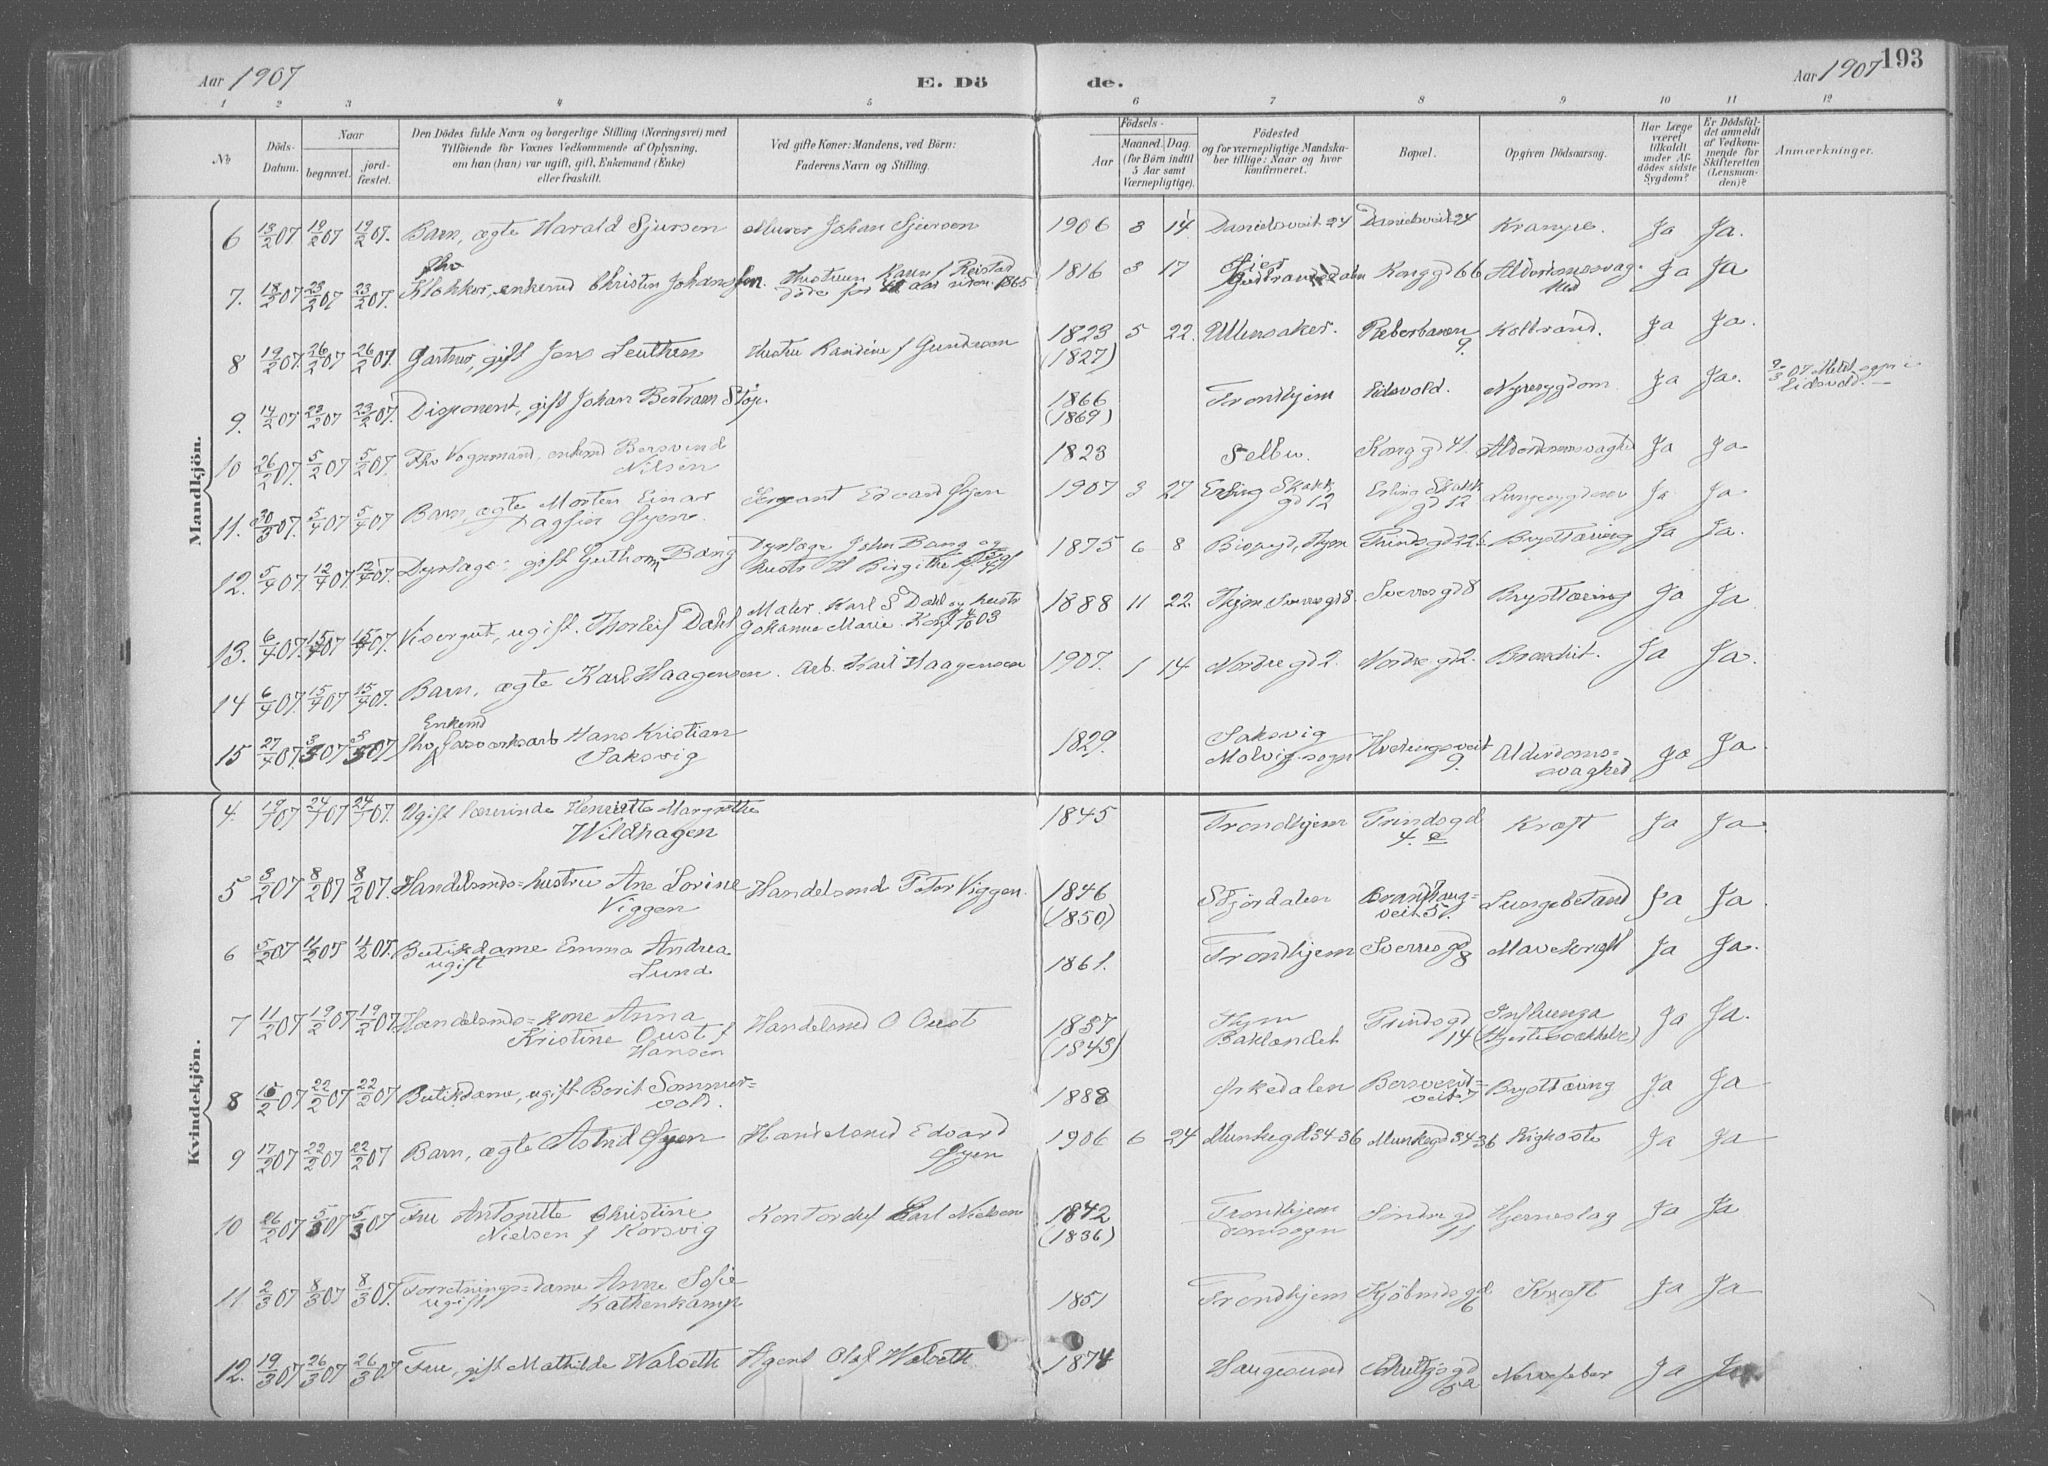 Aar 1907 E. Dö de. Aar 1907 193
1 2 3 4 5 6 7 8 9 10 11 12
No
Döds-Datum.
Naar
begravet.
jordfæstet.
Den Dödes fulde Navn og borgerlige Stilling (Næringsvei) med
Tilföiende for Voxnes Vedkommende af Oplysning,
om han (hun) var ugift, gift, Enkemand (Enke)
eller fraskilt.
Ved gifte Koner: Mandens, ved Börn:
Faderens Navn og Stilling.
Födsels-
Aar
Maaned. Dag.
(for Börn indtil
5 Aar samt
Værnepligtige).
Födested
og for værnepligtige Mandskaber tillige: Naar og hvor
konfirmeret.
Bopæl.
Opgiven Dödsaarsag.
Har Læge
været
tilkaldt
under Afdödes sidste
Sygdom?
Er Dödsfaldet anmeldt
af Vedkommende for
Skifteretten
(Lensmanden)?
Anmærkninger.
Mandkjön.
6 13/2 07 19/2 07 19/2 07. Barn, ægte Harald Sjursen Murer Johan Sjursen 1906 3 14 Danielsveit 24 Danielsveit 24 Krampe. Ja Ja.
7. 18/2 07 23/2 07 23/2 07. fhv Klokker, enkemd Christen Johansen. 1816 3 17 Kongg d 66 Ja Ja
8 19/2 07. 26/2 07 26/2 07. Gartner, gift Jens Leuthen Hustru Randine f Gundersen 1823 (1827) 5 22. Ullensaker. Reberbanen 9. Koldbrand. Ja Ja.
9. 14/2 07 23/2 07 23/2 07. Disponent, gift Johan Bertram Stöp. 1866 (1869) Trondhjem Eidsvold. Nyresygdom Ja Ja. Eidsvold.
10 26/2 07. 5/2 07 5/2 07. Fhv Vognmand, enkemd Bersvend Nilsen 1823 Selbu. Kongg d 41. Alderdomssvaghed Ja Ja
11. 30/3 07. 5/4 07 5/4 07 Barn, ægte Morten Einar Dagfin Øyen. Sergeant Edvard Øyen 1907 3 27 Erling Skakk gd 12 Erling Skakk gd 12 Ja Ja
12. 5/4 07. 12/4 07. 12/4 07. Dyrlæge, gift Guthorm Bang Dyrlæge John Bang og hustr 1875 6 8 Brysttæring Ja Ja.
13. 6/4 07. 15/4 07 15/4 07. Visergut, ugift. Thorleif Dahl Maler Karl S Dahl og hustr Johanne Marie. Konf 4/10 03 1888 11 22. Thjem Sverresgd 8 Sverresgd 8 Brysttæring Ja Ja
14 6/4 07. 15/4 07 15/4 07. Barn, ægte Karl Haagensen. Arb. Karl Haagensen 1907. 1 14 Nordre gd 2. Nordre gd 2. Bronchit. Ja Ja.
15 27/4 07. 3/5 07 3/5 07 Enkemd fhv Gasværksarb Hans Kristian Saksvig 1829. Saksvig Malvig sogn Hvedingsveit 9. Alderdoms=svaghed Ja Ja
Kvindekjön.
4. 19/1 07 24/1 07 24/1 07. Ugift lærerinde Henriette Margrethe Wildhagen 1845 Trondhjem Prindsgd 4. e Kræft Ja Ja
5 3/2 07 8/2 07 8/2 07. Handelsmds=hustru Ane Lorine Viggen Handelsmd Peter Viggen. 1846 (1850) Stjördalen Brandhaug=veit 5. Lungebetænd Ja Ja
6 5/2 07 11/2 07 11/2 07. Butikdame Emma Andrea ugift Lund 1861. Trondhjem Sverresgd 8 Mavekræft Ja Ja.
7 11/2 07 19/2 07 19/2 07. Handelsmds=kone Anna Kristine Oust f Hansen Handelsmd O Oust 1837 (1843) Thjem Baklandet Prindsgd 14 Influenza Ja Ja.
8 15/2 07 22/2 07 22/2 07 Butikdame, ugift Berit Sommer=vold. 1888 Orkedalen Bersvend=veit 7 Brysttæring Ja Ja
9 17/2 07 22/2 07 22/2 07 Barn, ægte Astrid Øyen Handelsmd Edvard Øyen 1906 6 24 Munkegd 34-36 Munkegd 34-36 Kighoste Ja Ja
10 26/2 07 5/3 07 5/3 07 Fru Antonette Christine Nielsen f Korsvig Kontorchef Carl Nielsen 1842 (1836) Trondhjem domsogn Söndre gd 11 Hjerneslag Ja Ja
11 2/3 07 8/3 07 8/3 07. Forretnings=dame Anne Sofie ugift Kathenkamp 1851 Trondhjem Kjöbmdsgd 6 Kræft Ja Ja
12. 19/3 07 26/3 07 26/3 07 Fru, gift Mathilde Walseth Agent Olaf Walseth 1874 Haugesund Schultzsgd 5a Nervefeber Ja Ja